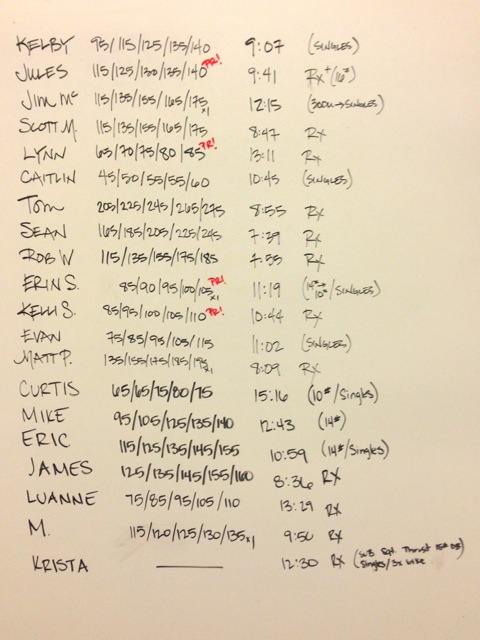 KELBY 95/115/125/135/140 9:07 (SINGLES)
JULES 115/125/130/135/140 PR! 9:41 RX+ (16#)
Jim Mc 115/135/155/165/175 x1 12:15 (300U→SINGLES)
SCOTT M. 115/135/155/165/175 8:47 RX
LYNN 65/70/75/80/85 PR! 13:11 RX
CAITLIN 45/50/55/55/60 10:45 (SINGLES)
Tom 205/225/245/265/275 8:55 RX
SEAN 165/185/205/225/245 7:39 RX
ROB W 115/135/155/175/185 7:55 RX
ERIN S. 85/90/95/100/105 x1 PR! 11:19 (14#→10#/SINGLES)
KELLI S. 85/95/100/105/110 PR! 10:44 RX
EVAN 75/85/95/105/115 11:02 (SINGLES)
MATT P. 135/155/175/185/195 x1 8:09 RX
CURTIS 65/65/75/80/75 15:16 (10#/Singles)
MIKE 95/105/125/135/140 12:43 (14#)
ERIC 115/125/135/145/155 10:59 (14#/Singles)
JAMES 125/135/145/155/160 8:36 RX
LUANNE 75/85/95/105/110 13:29 RX
M. 115/120/125/130/135 x1 9:50 RX
KRISTA 12:30 RX (SUB Sqt. Thrust 15# DB
Singles/3x